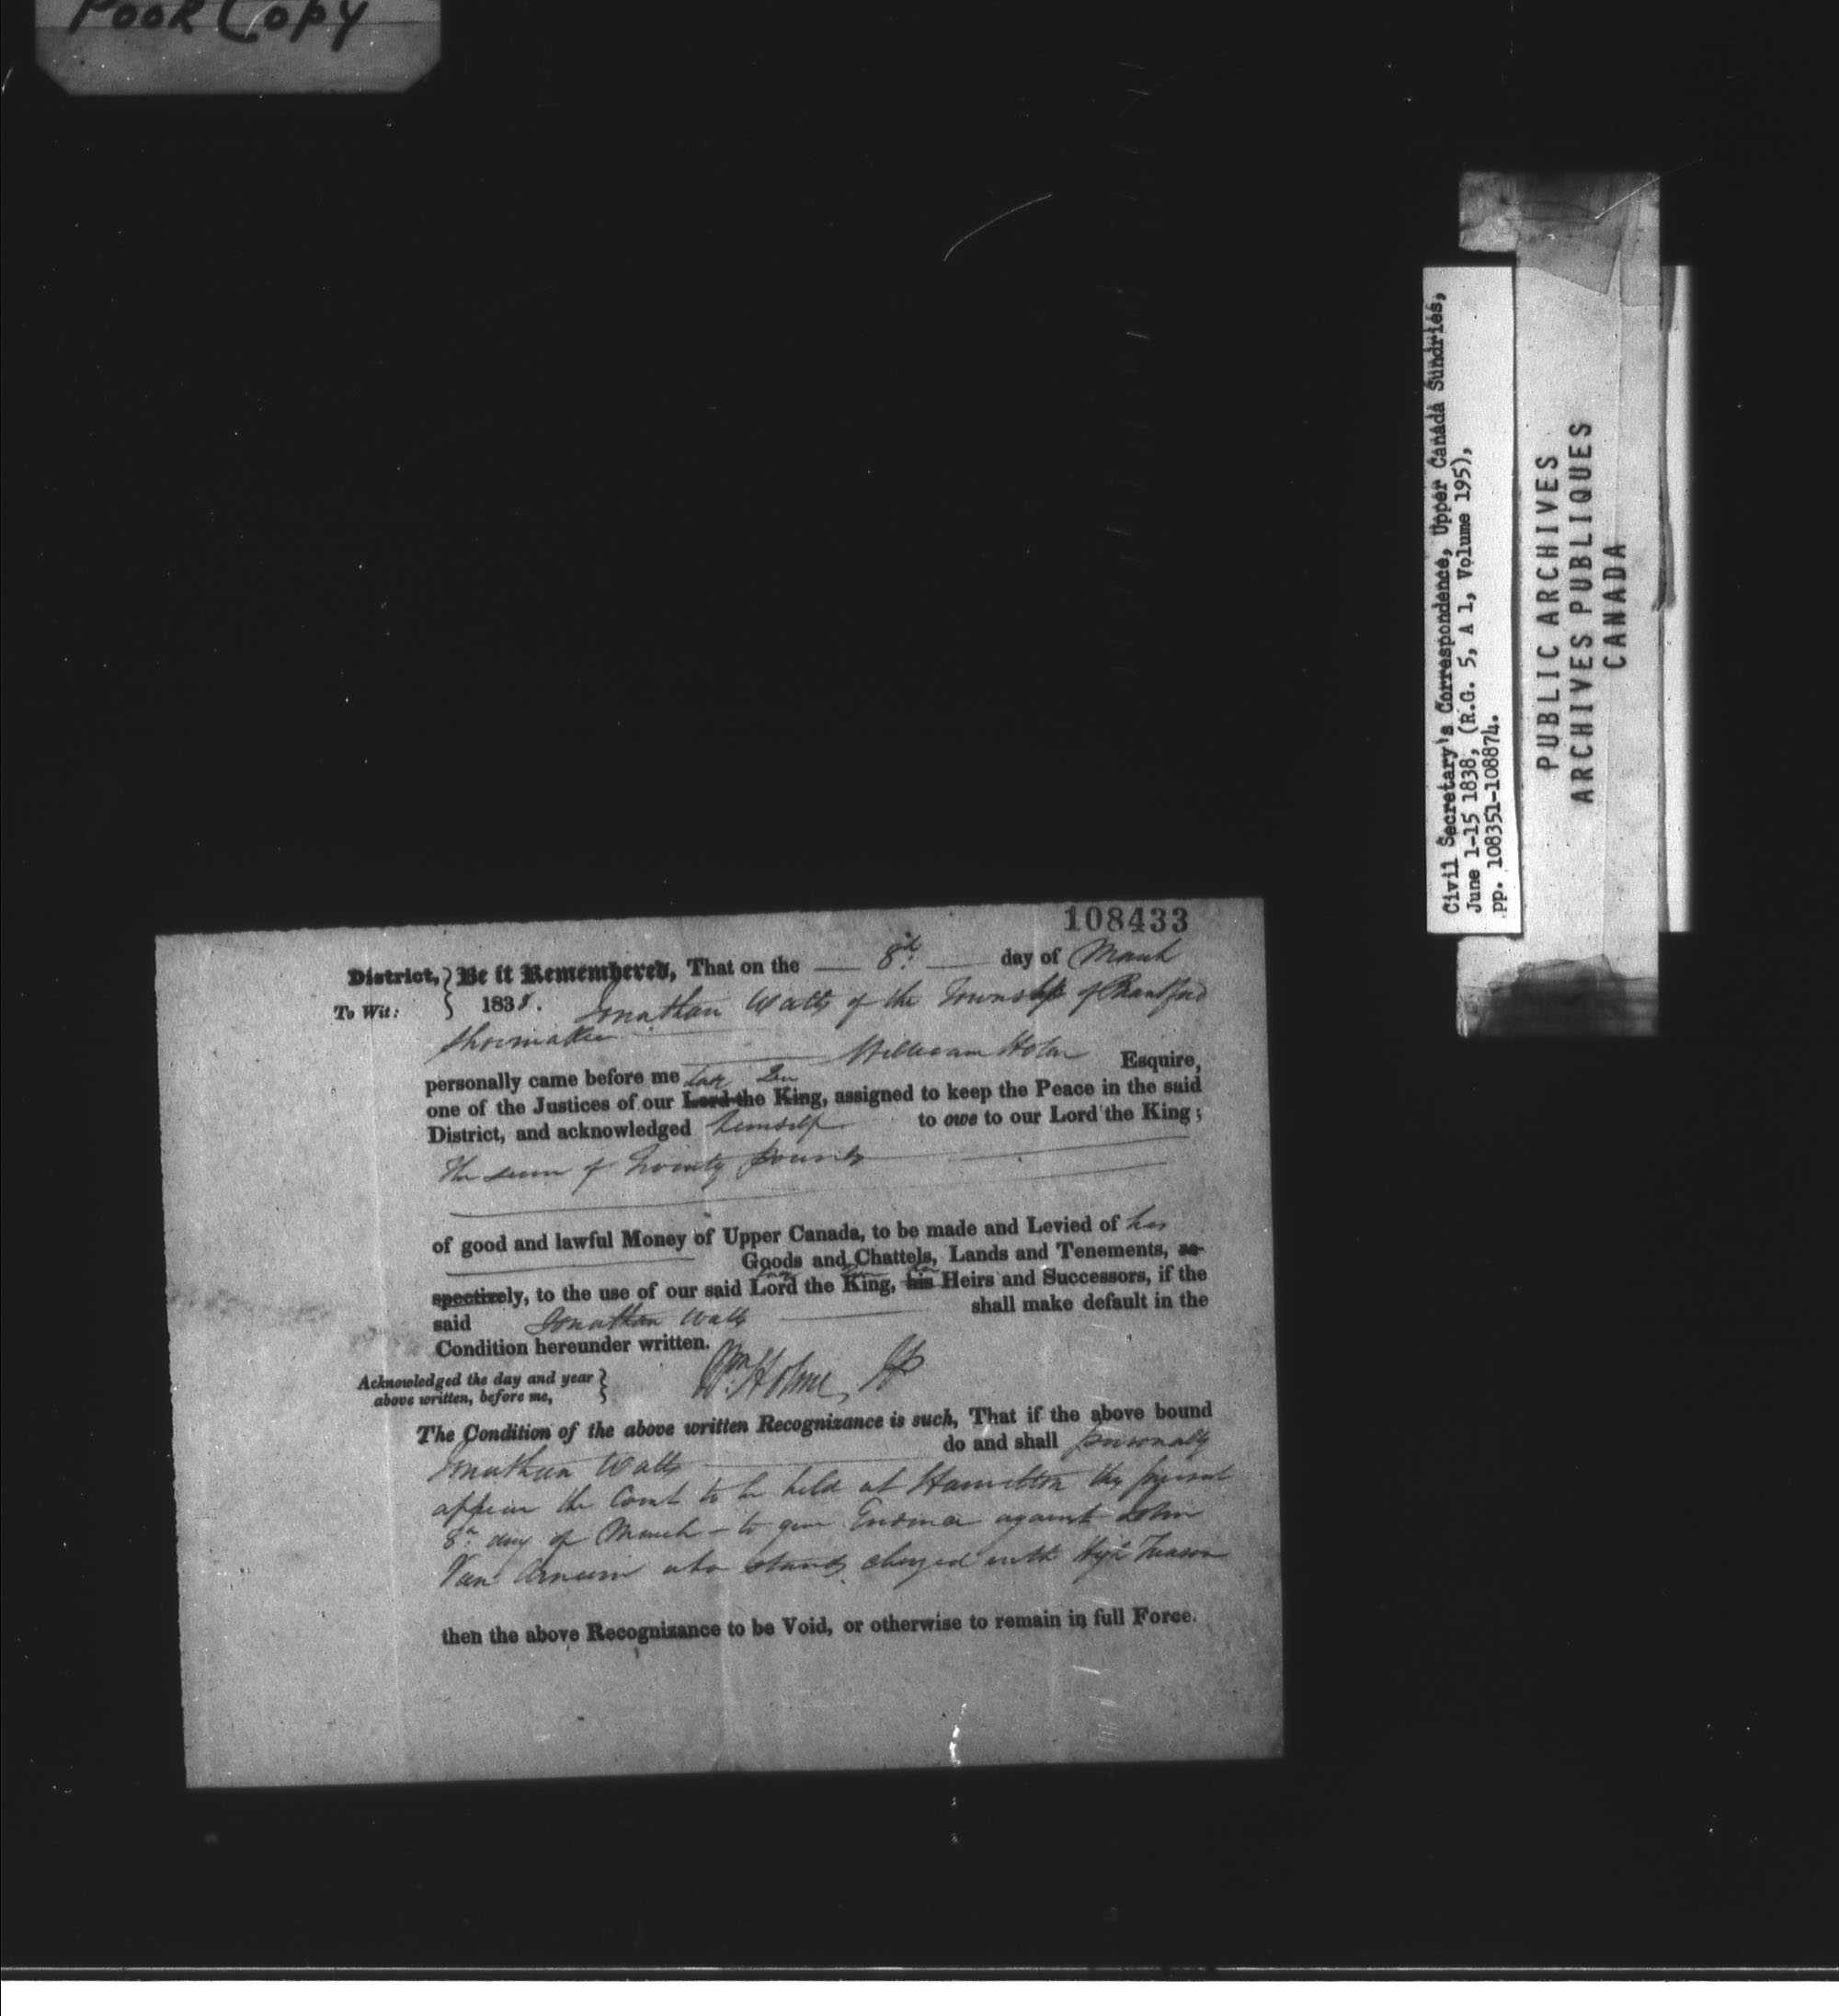 POOR COPY
Civil Secretary's Correspondence, Upper Canada Sundries,
June 1-15 1838, (R.G. 5, A 1, Volume 195),
pp. 108351-108874.
PUBLIC ARCHIVES
ARCHIVES PUBLIQUES
CANADA
108433
District, Be it Remembered, That on the 8th day of March
To Wit: 1838. Jonathan Watts of the Township of Brantford
Shoemaker
personally came before me William Holme Esquire,
one of the Justices of our Lord the King, assigned to keep the Peace in the said
District, and acknowledged himself to owe to our Lord the King;
The sum of Twenty pounds
of good and lawful Money of Upper Canada, to be made and Levied of his
Goods and Chattels, Lands and Tenements, re-
spectively, to the use of our said Lord the King, his Heirs and Successors, if the
said Jonathan Watts shall make default in the
Condition hereunder written.
Acknowledged the day and year
above written, before me,
Wm Holme JP
The Condition of the above written Recognizance is such, That if the above bound
Jonathan Watts do and shall personally
appear the Court to be held at Hamilton this present
8th day of March - to give Evidence against John
Van Arnam who stands charged with High Treason
then the above Recognizance to be Void, or otherwise to remain in full Force.